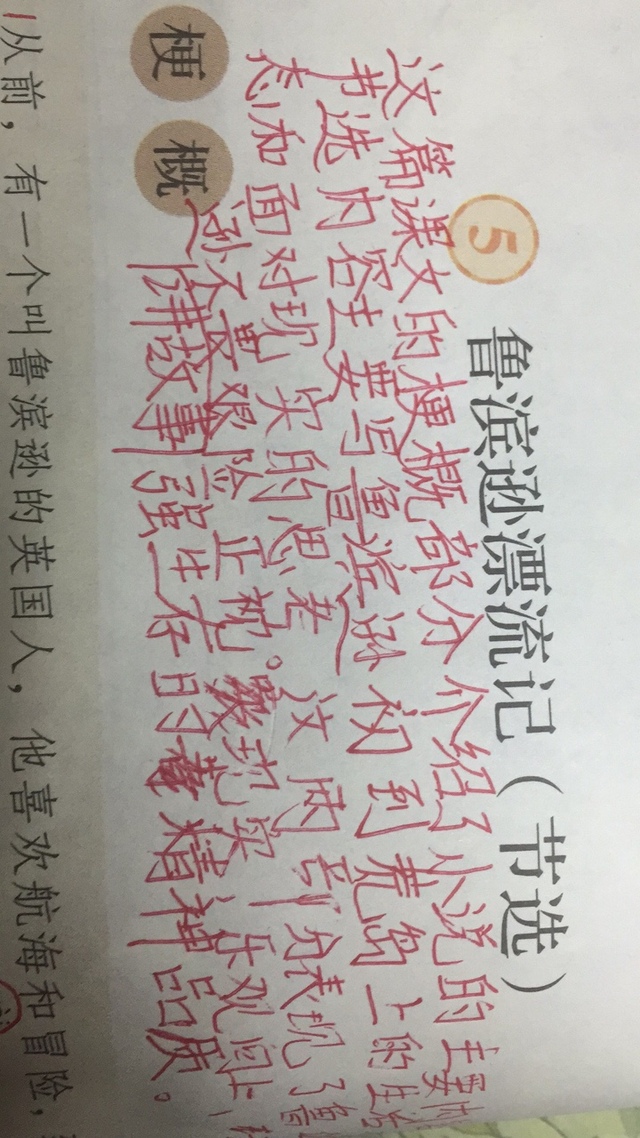 5 鲁滨逊漂流记（节选）
这篇课文的梗概部分介绍了小说的主要内容
节选内容主要写鲁滨逊初到荒岛上的生
态和面对现实的思考。这两部分表现了鲁
逊不畏艰险 正视现实 乐观向上、
故事 强生存的精神品质。
梗概
从前，有一个叫鲁滨逊的英国人，他喜欢航海和冒险，